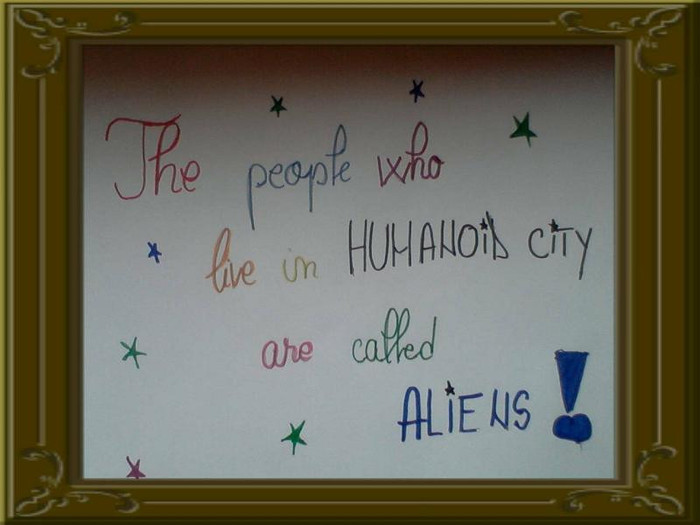 The people who
live in HUMANOiD CiTY
are called
ALiENS!